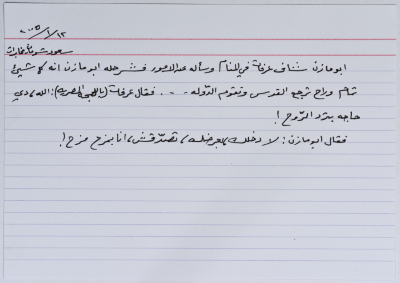 ٢٠٠٥/١/١٢
سعود
ابو مازن شاف عرفات في المنام وسأله عن الامور فشرحله ابو مازن انه كل شيئ
تمام وراح نرجع القدس وتقوم الدوله - - . فقال عرفات (باللهجه المصريه): الله، دي
حاجه بترد الروح!
فقال ابو مازن: لا دخلك، بعرضك، تصدقش، انا بمزح مزح!